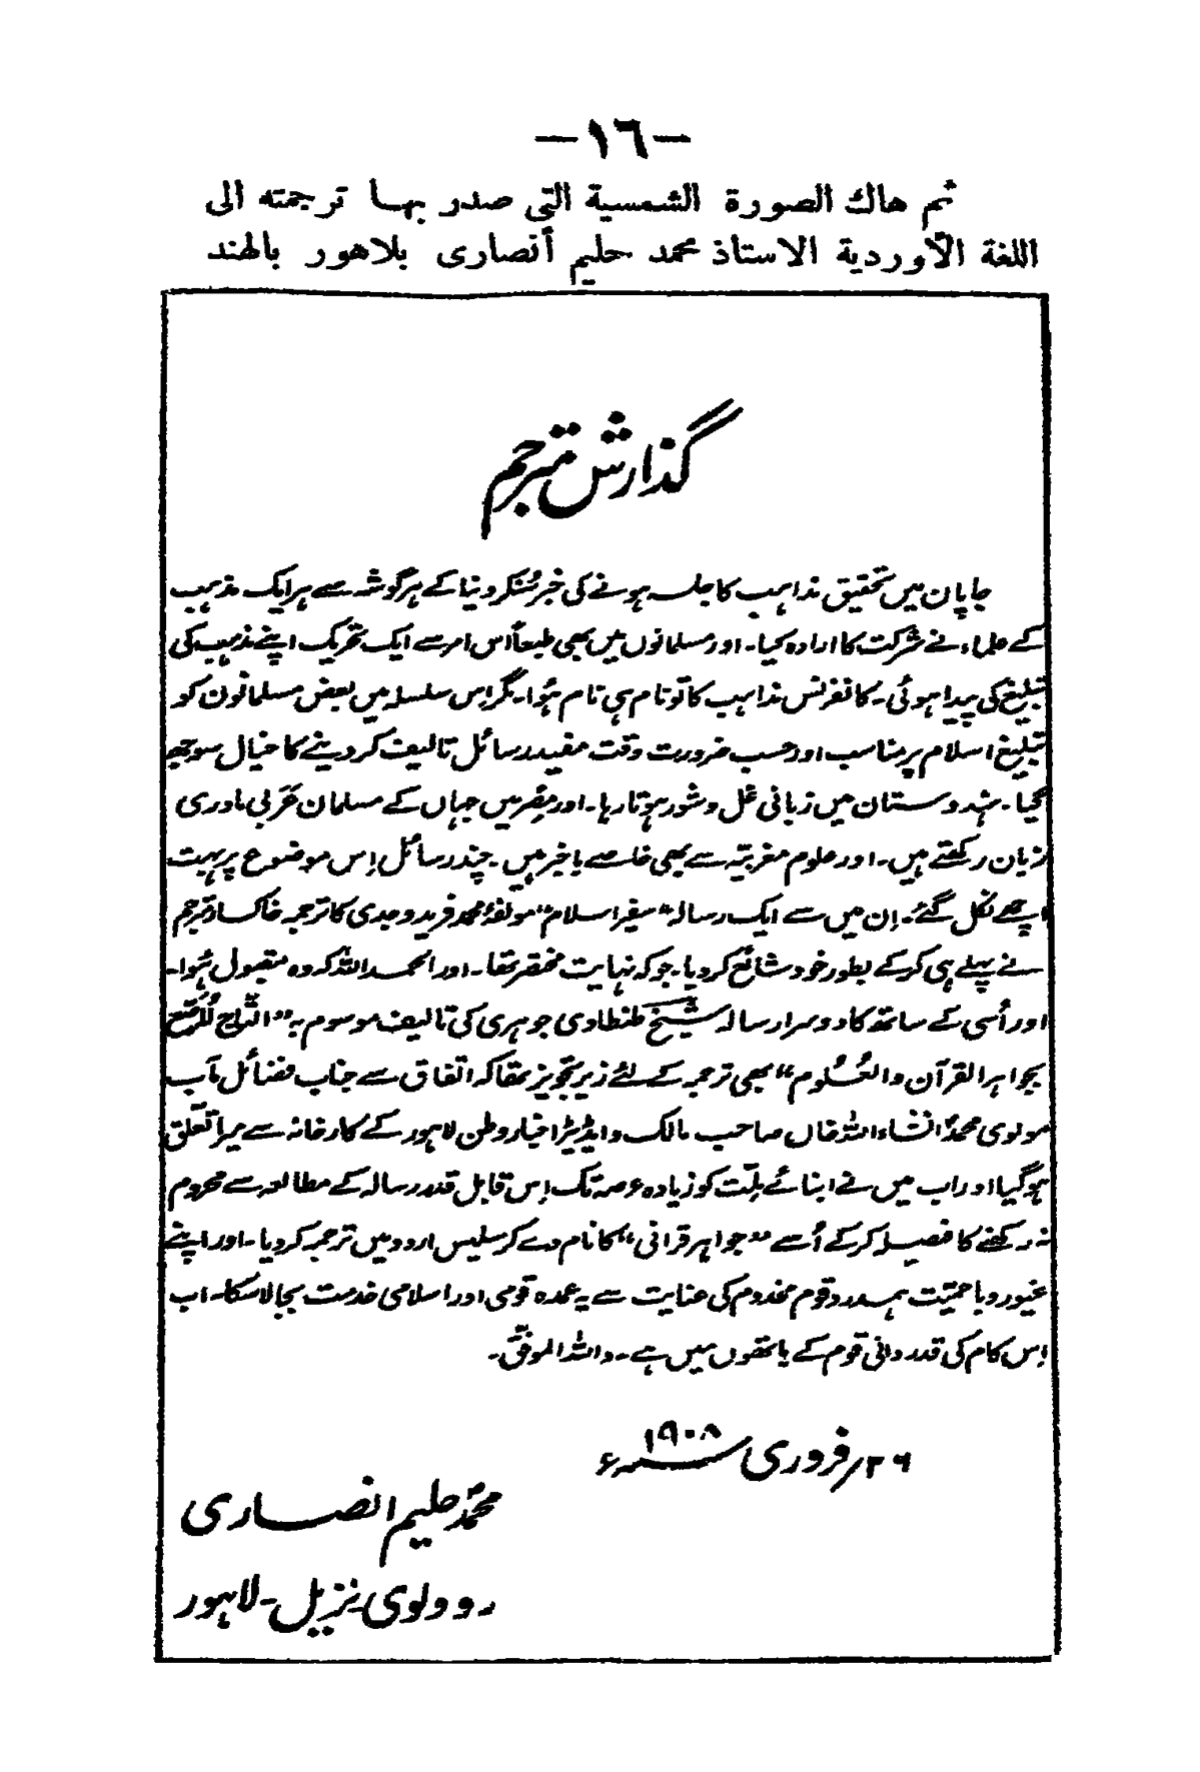 —١٦—
ثم هاك الصورة الشمسية التي صدر بها ترجمته الى
اللغة الأوردية الاستاذ محمد حليم أنصارى بلاهور بالهند
گذارش مترجم
جاپان میں تحقیق مذاہب کا جلسہ ہونے کی خبر سُنکر دنیا کے ہر گوشہ سے ہر ایک مذہب
کے علماء نے شرکت کا ارادہ کیا۔ اور مسلمانوں میں بھی طبعاً اس امر سے ایک تحریک اپنے مذہب کی
تبلیغ کی پیدا ہوئی۔ کانفرنس مذاہب کا تو نام ہی نام ہُوا۔ مگر اِس سلسلہ میں بعض مسلمانون کو
تبلیغ اسلام پر مناسب اور حسب ضرورت وقت مفید رسائل تالیف کر دینے کا خیال سوجھ
گیا۔ ہندوستان میں زبانی غل و شور ہوتا رہا۔ اور مِصر میں جہاں کے مسلمان عَربی مادری
زبان رکھتے ہیں۔ اور علوم مغربیّہ سے بھی خاصے باخبر ہیں۔ چند رسائل اِس موضوع پر بہت
اچھے نکل گئے۔ اِن میں سے ایک رسالہ “سفیر اسلام” مولفۂ محمد فرید وجدی کا ترجمہ خاکسار مترجم
نے پہلے ہی کر کے بطور خود شائع کر دیا۔ جو کہ نہایت مختصر تھا۔ اور الحمد اللہ کہ وہ مقبول ہُوا۔
اور اُسی کے ساتھ کا دوسرا رسالہ شیخ طنطاوی جوہری کی تالیف موسوم بہ “التاج المُرصّع
بجواہر القرآن والعُلوم” بھی ترجمہ کے لئے زیر تجویز تھا کہ اتفاق سے جناب فضائل مآب
مولوی محمدؐ انشاء اللہ خاں صاحب مالک و ایڈیٹر اخبار وطن لاہور کے کارخانہ سے میرا تعلّق
ہو گیا اور اب میں نے ابنائے مِلّت کو زیادہ عرصہ تک اِس قابل قدر رسالہ کے مطالعہ سے محروم
نہ رکھنے کا فیصلہ کر کے اُسے “جواہر قرانی” کا نام دے کر سلیس اردو میں ترجمہ کر دیا۔ اور اپنے
غیور و باحمیّت ہمدرد قوم مخدوم کی عنایت سے یہ عمدہ قومی اور اسلامی خدمت بجا لا سکا۔ اب
اِس کام کی قدر دانی قوم کے ہاتھوں میں ہے۔ واللہ الموفّق۔
۲۶؍ فروری ۱۹۰۸؁ء
محمدؐ حلیم انصاری
ردولوی نزیل۔ لاہور